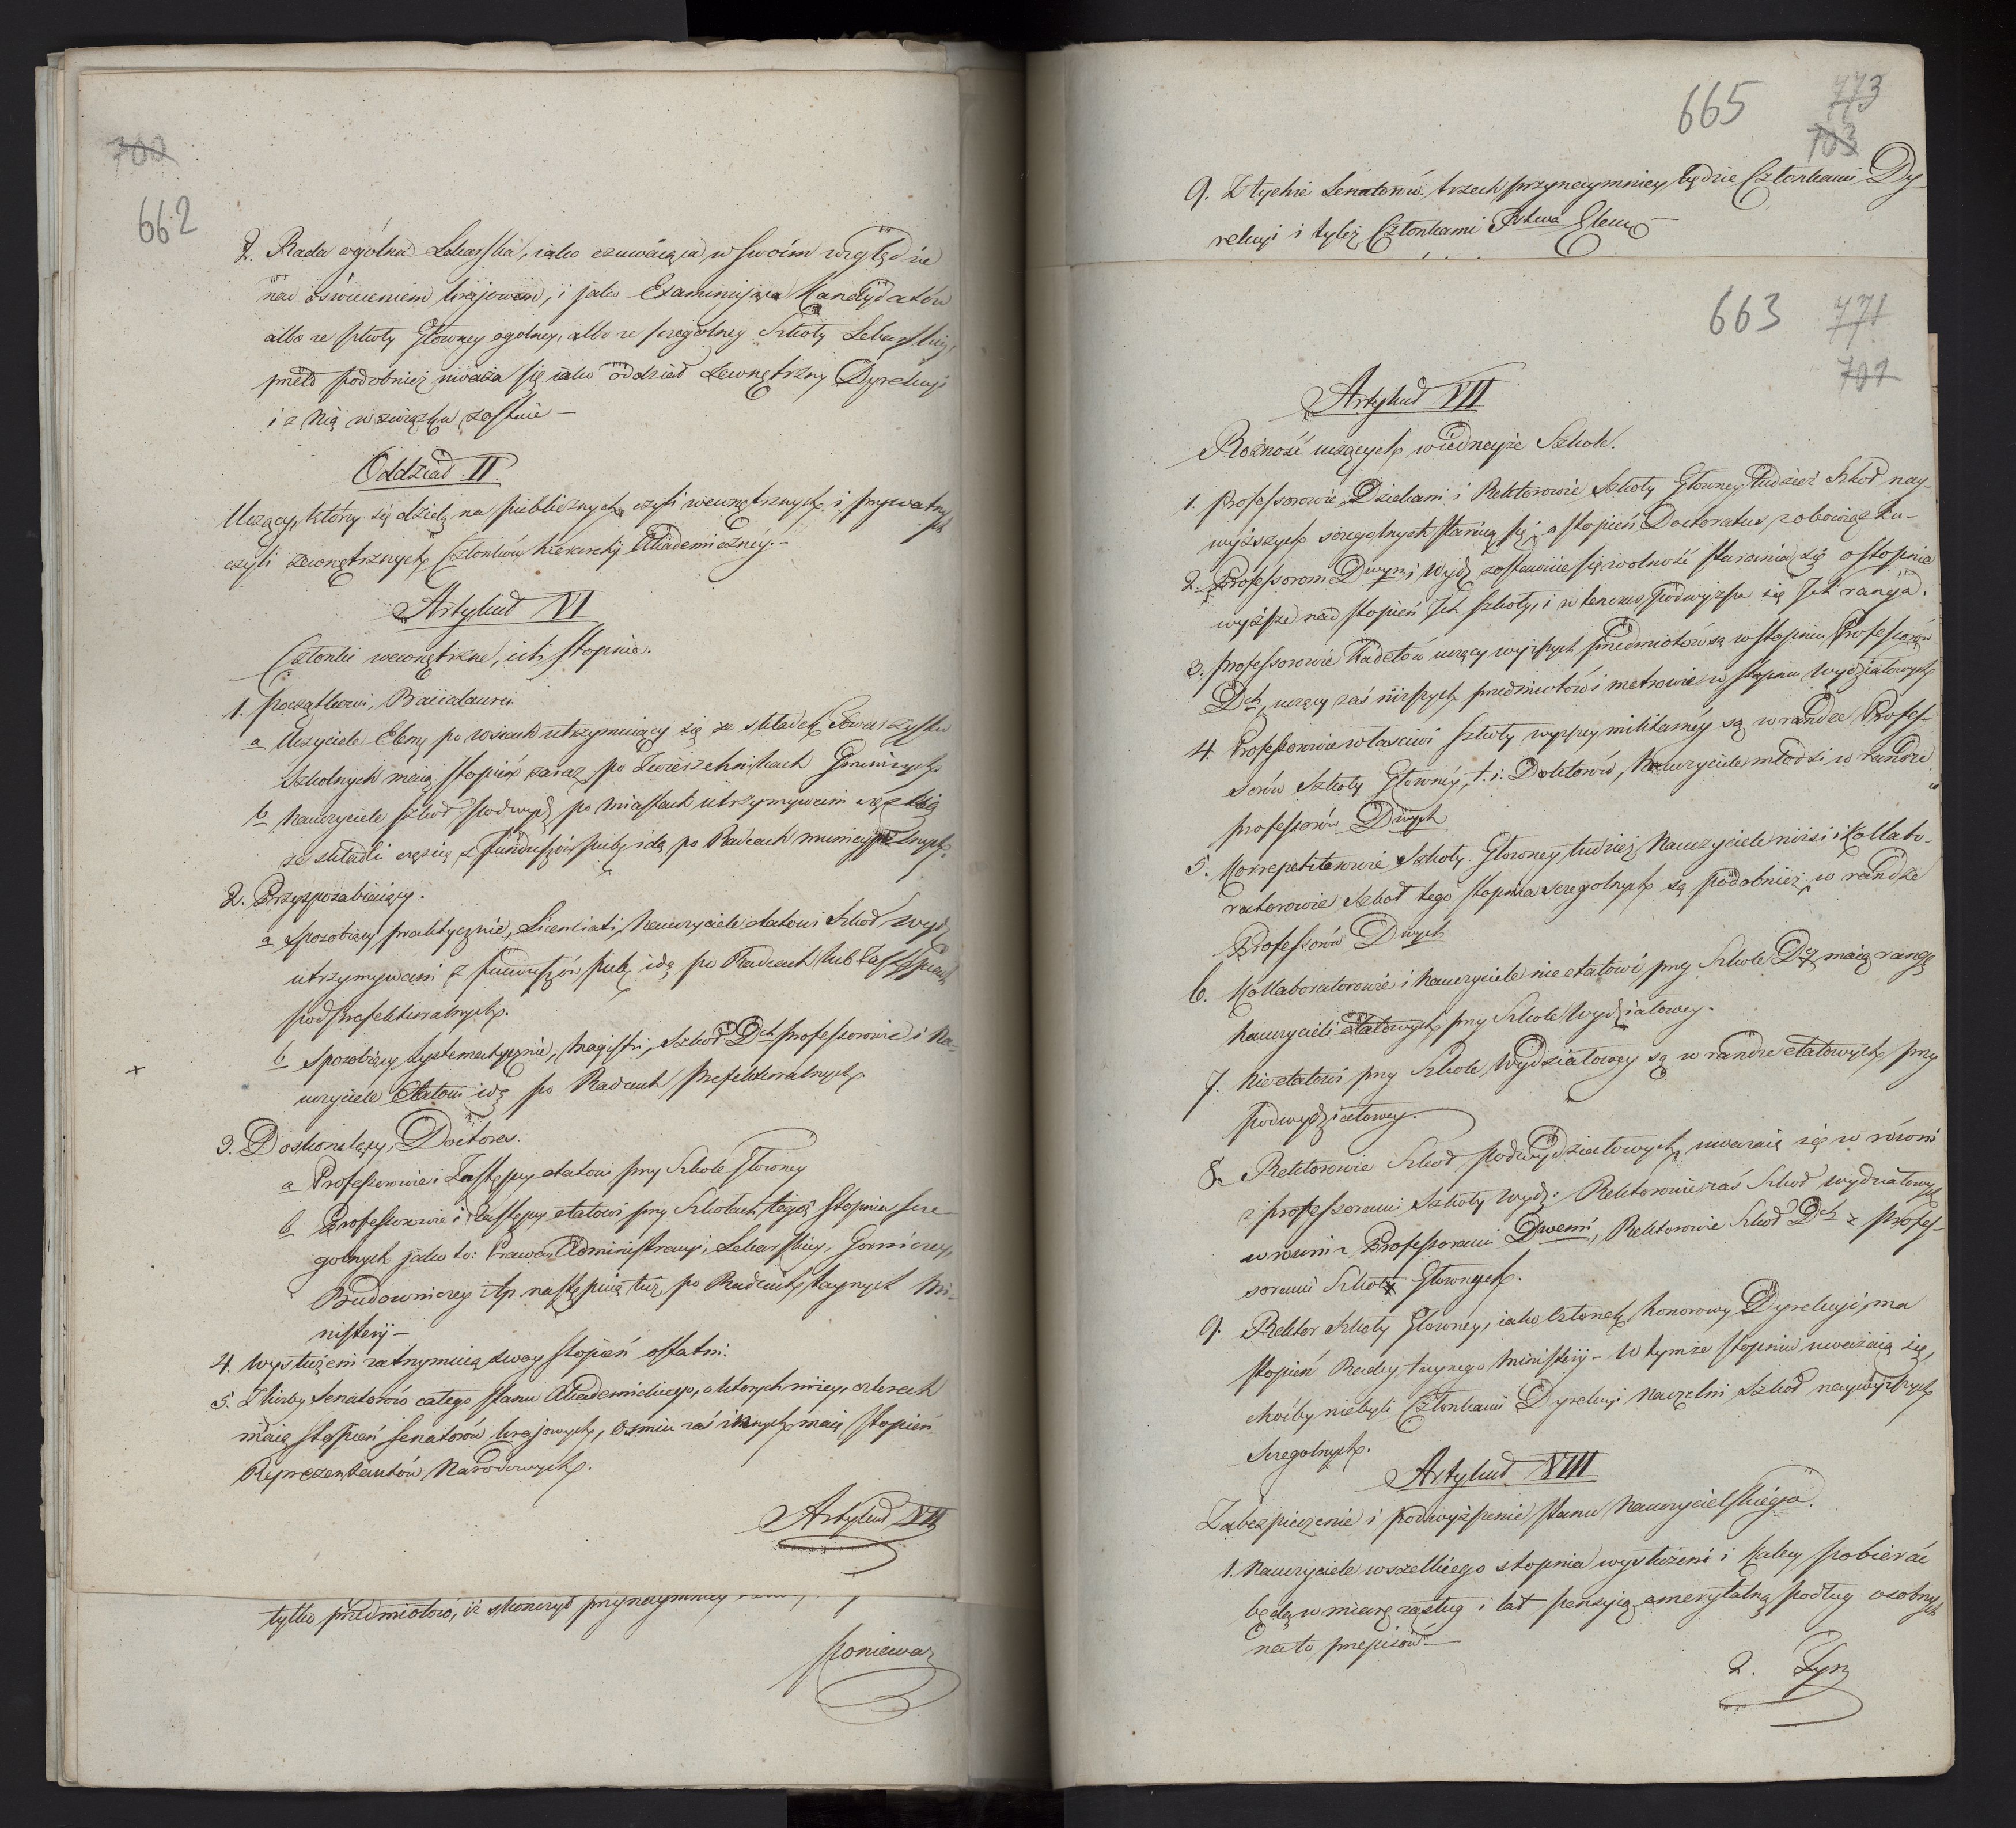 700
662
2. Rada ogólna Lekarska, iako czuwaiąca w swoim względzie
nad oświeceniem kraiowem, i jako Examinująca Kandydatów
albo ze szkoły Głowney ogólney, albo ze szczegolney Szkoły Lekarskiey,
przeto podobnież uważa się iako oddział zewnętrzny Dyrekcyi
i z Nią w związku zostaie —
Oddział II.
Uczący, który się dzielą na publicznych czyli wewnętrznych i prywatnych
czyli zewnętrznych Członków hierarchij Akademiczney. —
Artykuł VI
Członki wewnętrzne, ich stopnie.
1. Początkowi, Baccalaurei
a Uczyciele Elemę po wsiach utrzymuiący się ze składek Towarzystw
Szkolnych maią stopień zaraz po Zwierzchnikach Gminnych
b Nauczyciele szkół podwydz po miastach utrzymywani częścią
ze składki częścią z funduszów pub. idą po Radcach municypalnych.
2. Przysposabiaiący.
a Sposobiący praktycznie, Licenciati, Nauczyciele etatowi Szkół Wydz
utrzymywani z funduszów pub. idą po Radcach lub Zastępcach
podprefekturalnych.
b Sposobiący systematycznie, Magistri, Szkół Dch professorowie i Na-
uczyciele Etatowi idą po Radcach prefekturalnych
3. Doskonalący, Doctores.
a Professorowie i Zastępcy etatowi przy Szkole Głowney
b Professorowie i Zastępcy etatowi przy Szkołach tegoż stopnia szcze-
golnych jako to: Prawa, Administracyi, Lekarskiey, Gorniczey,
Budowniczey itp. następuią tuż po Radcach taynych Mi-
nisterij —
4. Wysłużeni zatrzymuią swoy stopień ostatni.
5. Z liczby Senatorów całego stanu Akademickiego, o których niżey, czterech
maią stopień Senatorów kraiowych, ośmiu zaś innych maią stopień
Reprezentantów Narodowych.
Artykuł VII
tylko przedmiotów, iż skończył przynaymniey
ponieważ
665 773
703
9. Z tychże Senatorów trzech przynaymniey będzie Członkami Dy-
rekcyi i tyleż Członkami Ktwa Elem —
663 771
701
Artykuł VII
Rożność uczących w iedneyże Szkole.
1. Professorowie, Dziekani i Rektorowie Szkoły Głowney tudzież Szkół nay-
wyższych szczegolnych staraią się o stopień Doktoratus z obowiązku —
2. Professorom Dwym i Wydz zostawuie się wolność starania się o stopnie
wyższe nad stopień Ich szkoły, i w tenczas podwyższa się Ich ranga.
3. Professorowie Kadetów uczący wyższych przedmiotów są w stopniu Professorów
Dch, uczący zaś niższych przedmiotów i metrowie w stopniu Wydziałowych
4. Professorowie właściwi Szkoły wyższey militarney są w randze Profes-
sorów Szkoły Głowney, t. i. Doktorów, Nauczyciele młodsi w randze
professorów Dwych
5. Korrepetitorowie Szkoły Głowney tudzież Nauczyciele niżsi i Kollabo-
ratorowie Szkoł tego stopnia szczegolnych są podobnież w randze
Professorów Dwych
6. Kollaboratorowie i Nauczyciele nieetatowi przy Szkole Dey maią rangę
Nauczycieli etatowych przy Szkole Wydziałowey.
7. Nieetatowi przy Szkole Wydziałowey są w randze etatowych przy
podwydziałowey.
8. Rektorowie Szkół podwydziałowych, uważaią się w równi
z professorami Szkoły Wydz: Rektorowie zaś Szkoł wydziałowych
w rowni z Professorami Dwemi, Rektorowie Szkoł Dch z Profes-
sorami Szkoły Głownych.
9. Rektor Szkoły Głowney, iako Członek honorowy Dyrekcyi, ma
stopień Radcy taynego Ministerij — W tymże stopniu uważaią się,
choćby niebyli Członkami Dyrekcyi Naczelni Szkół naywyższych
Szczegolnych.
Artykuł VIII
Zabezpieczenie i podwyższenie stanu Nauczycielskiego.
1. Nauczyciele wszelkiego stopnia wysłużeni i Kalecy pobierać
będą w miarę zasług i lat pensyią emerytalną podług osobnych
na to przepisów —
2. Tym